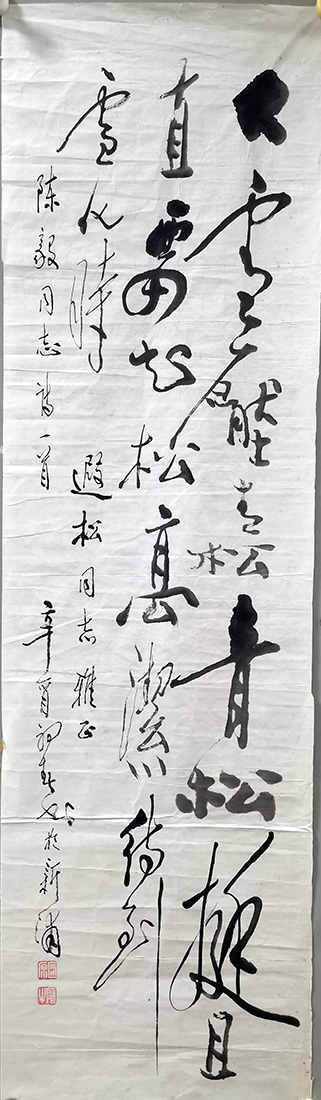 大雪壓青松青松挺且
直要知松高潔待到
雪化時
遐松同志雅正
陳毅同志詩一首
辛酉初春書於新浦